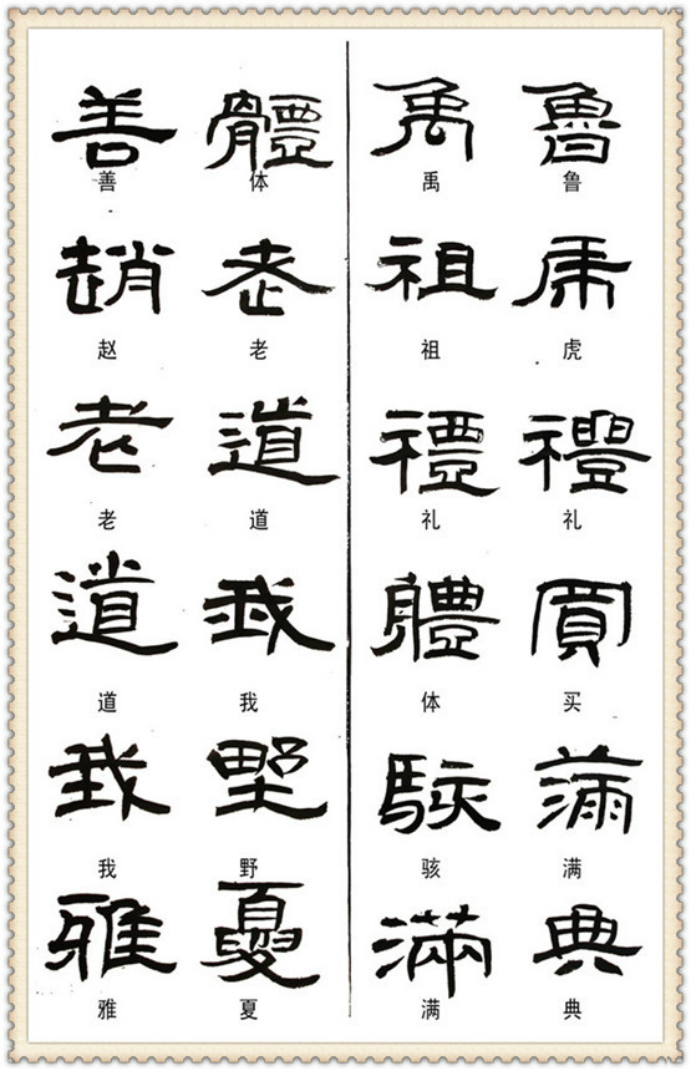 善 體 禹 魯
善 体 禹 鲁
趙 老 祖 虎
赵 老 祖 虎
老 道 禮 禮
老 道 礼 礼
道 我 體 買
道 我 体 买
我 野 駭 滿
我 野 骇 满
雅 夏 滿 典
雅 夏 满 典